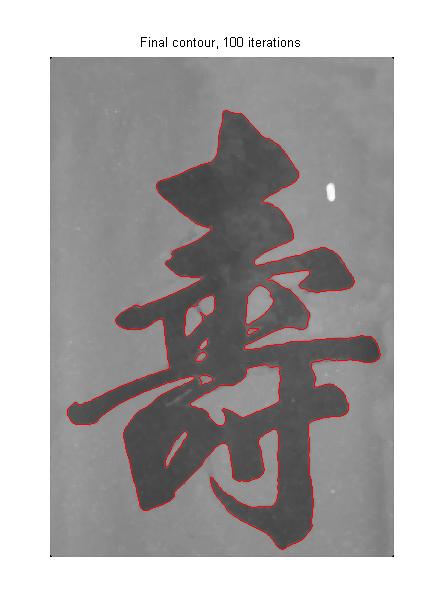 Final contour, 100 iterations
壽